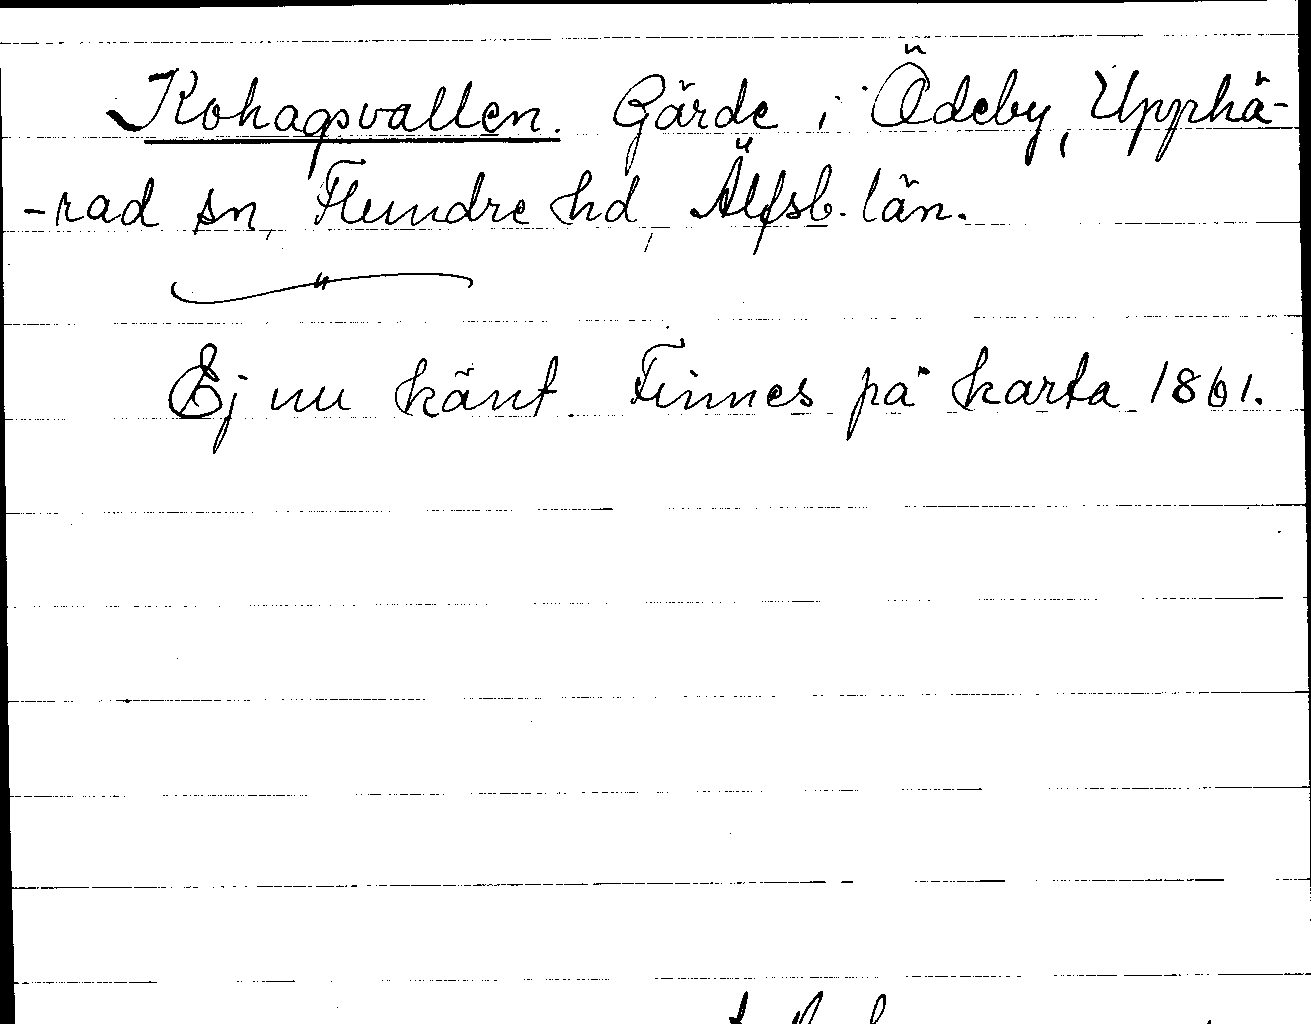 Kohagsvallen. Gärde i Ödeby, Upphä-
-rad sn, Flundre hd, Älfsb. län.
"
Ej nu känt. Finnes på karta 1861.